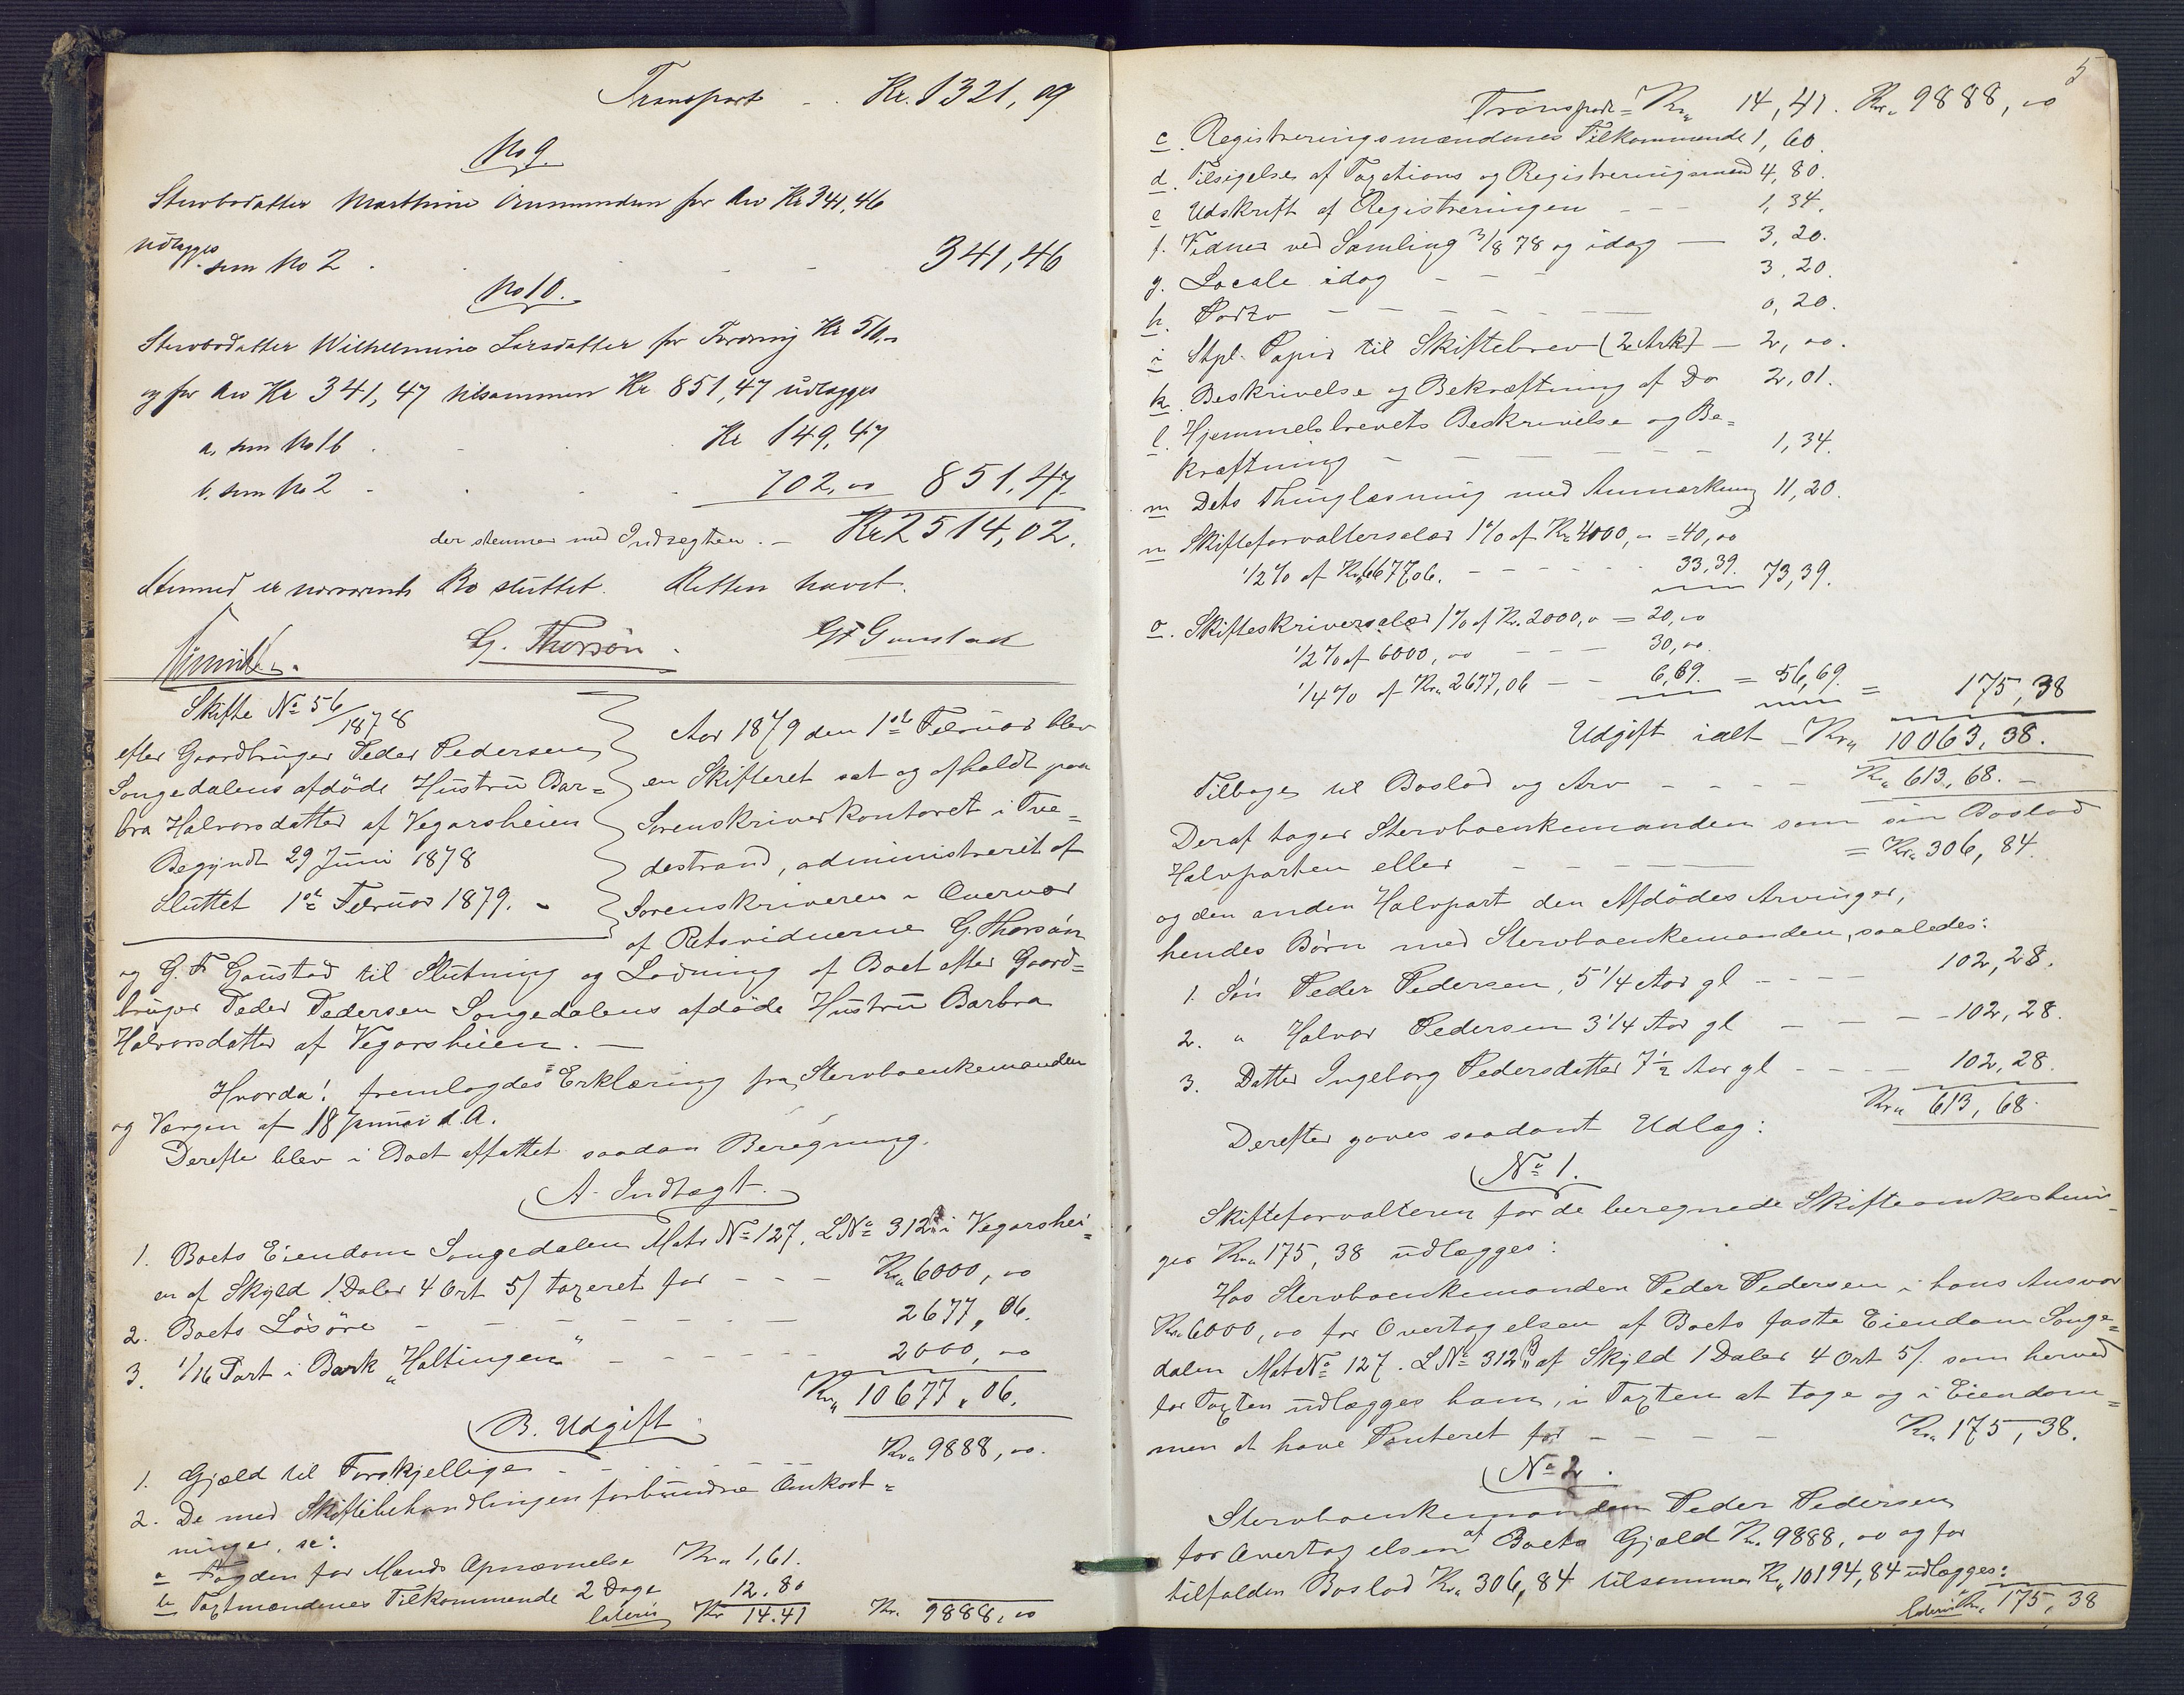 Transport - . Kr. 1321, 09
No 9
Stervbodatter Marthine Gunmundsen for Arv Kr 341,46
udlægges
sum No 2 . 341,46
No 10.
Stervbodatter Wilhelmine Larsdatter for Fordring Kr 510,-
og for Arv Kr 341,47 tilsammen Kr 851,47 udlægges
a, sum No 1b . Kr 149,47
b, sum No 2 - 702,00 851,47
der stemmer med Indtægten. - Kr 2514,02.
Hermed er nærværende Bo sluttet. Retten hævet.
G. Thorsön. G F Gaustad
Skifte No 56/1878
efter Gaardbruger Peder Pedersen
Songedalens afdöde Hustru Bar=
bra Halvorsdatter af Vegarsheien
Begyndt 29 Juni 1878
Sluttet 1ste Februar 1879. -
Aar 1879 den 1ste Februar blev
en Skifteret sat og afholdt paa
Sorenskriverkontoret i Tve=
destrand, administreret af
Sorenskriveren i Overvær
af Retsvidnerne G. Thorsön
og G. F Gaustad til Slutning og Lodning af Boet efter Gaard=
bruger Peder Pedersen Songedalens afdöde Hustru Barbra
Halvorsdatter af Vegarsheien. -
Hvorda! fremlagdes Erklæring fra Stervboenkemanden
og Værgen af 18 Januar d. A.
Derefter blev i Boet affattet saadan Beregning.
A. Indtægt.
1. Boets Eiendom Songedalen Matr No 127. LNo 312 i Vegarshei=
en af Skyld 1 Daler 4 Ort 5 / taxeret for - - - Kr. 6000, 00
2. Boets Lösöre - - - - - - - 2677, 06.
3. 1/16 Part i Bark "Haltingen" - - - - - - 2000, 00
Kr. 10677, 06.
B. Udgift.
1. Gjæld til Forskjellige - - - - - Kr. 9888, 00.
2. De med Skiftebehandlingen forbundne Omkost=
ninger, se:
a Fogden for Mænds Opnævnelse Kr. 1,61.
b Taxtmændenes Tilkommende 2 Dage 12.80
lateris Kr 14.41 Kr. 9888, 00
5
Transport = Kr. 14,41. Kr. 9888, 00
c. Registreringsmændenes Tilkommende 1, 60.
d. Tilsigelse af Taxations og Registreringsmænd 4, 80.
e Udskrift af Registreringen - - - 1, 34.
f. Vidner ved Samling 3/8 78 og idag - 3, 20.
g. Locale idag - - - 3, 20.
h. Porto - - - - - - 0, 20.
i Stpl. Papir til Skiftebrev (2 Ark) - 2, 00.
k. Beskrivelse og Bekræftning af Do 2, 01.
l. Hjemmelsbrevets Beskrivelse og Be=
kræftning - - - - - - 1, 34.
m Dets Thinglæsning med Anmærkning 11, 20.
n Skifteforvaltersalær 1% af Kr. 4000, - = 40, 00
1/2% af Kr. 6677,06. - - - - - 33, 39. 73, 39.
o. Skifteskriversalær 1% af Kr. 2000, 0 = 20, 00
1/2% af 6000, 00 - - - 30, 00.
1/4% af Kr. 2677, 06 - - 6, 69. = 56, 69. = 175, 38
Udgift ialt - Kr. 10063, 38.
Tilbage til Boslod og Arv - - - - Kr. 613, 68. -
Deraf tager Stervboenkemanden som sin Boslod
Halvparten eller - - - = Kr. 306, 84.
og den anden Halvpart den Afdödes Arvinger,
hendes Börn med Stervboenkemanden, saaledes:
1. Sön Peder Pedersen, 5 1/4 Aar gl - - - 102, 28.
2. " Halvor Pedersen 3 1/4 Aar gl - - - - 102, 28.
3. Datter Ingeborg Pedersdatter 7 1/2 Aar gl - - - - 102, 28.
Kr. 613, 68.
Derefter gaves saadant Udlæg:
No 1.
Skifteforvalteren for de beregnede Skifteomkostnin=
ger Kr. 175, 38 udlægges:
Hos Stervboenkemanden Peder Pedersen i hans Ansvar
Kr. 6000, 00 for Overtagelsen af Boets faste Eiendom Songe=
dalen Mat No 127. LNo 312 af Skyld 1 Daler 4 Ort 5 /. som herved
for Taxten udlægges ham, i Taxten at tage og i Eiendom=
men at have Panteret for - - - - Kr. 175, 38.
No 2.
Stervboenkemanden Peder Pedersen
for Overtagelsen af Boets Gjæld Kr. 9888, 00 og for
tilfalden Boslod Kr. 306,84 tilsammen Kr. 10194,84 udlægges:
lateris Kr. 175, 38